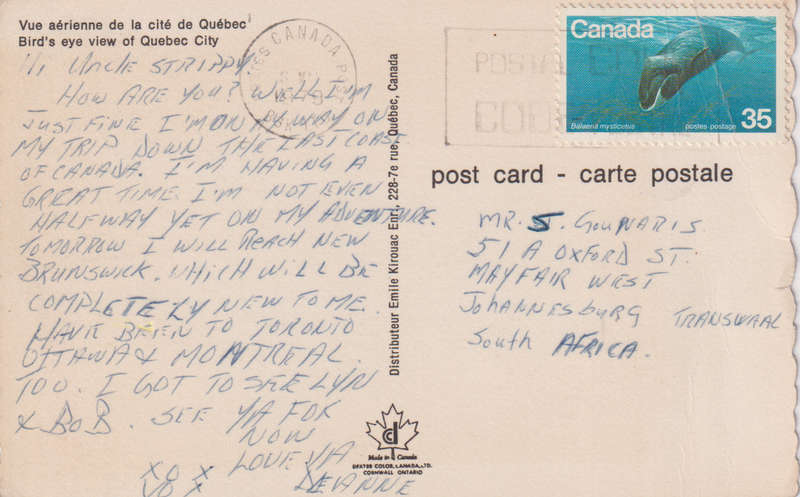 Vue aérienne de la cité de Québec
Bird's eye view of Quebec City
HI UNCLE STRIPPY
HOW ARE YOU? WELL I'M
JUST FINE I'M ON MY WAY ON
MY TRIP DOWN THE EAST COAST
OF CANADA. I'M HAVING A
GREAT TIME. I'M NOT EVEN
HALFWAY YET ON MY ADVENTURE.
TOMORROW I WILL REACH NEW
BRUNSWICK. WHICH WILL BE
COMPLETELY NEW TO ME.
HAVE BEEN TO TORONTO
OTTAWA & MONTREAL
TOO. I GOT TO SEE LYN
& BOB. SEE YA FOR
NOW
LOVE YA
XO X
XO X DEANNE
Distributeur Emile Kirouac Enr., 228-7e rue, Québec, Canada
CANADA
POSTAL
COD
Canada
Balaena mysticetus postes postage 35
post card - carte postale
MR. S. GOUNARIS.
51 A OXFORD ST.
MAYFAIR WEST
JOHANNESBURG TRANSWAAL
South AFRICA.
cd
Made in Canada
DEXTER COLOR, CANADA, LTD.
CORNWALL ONTARIO